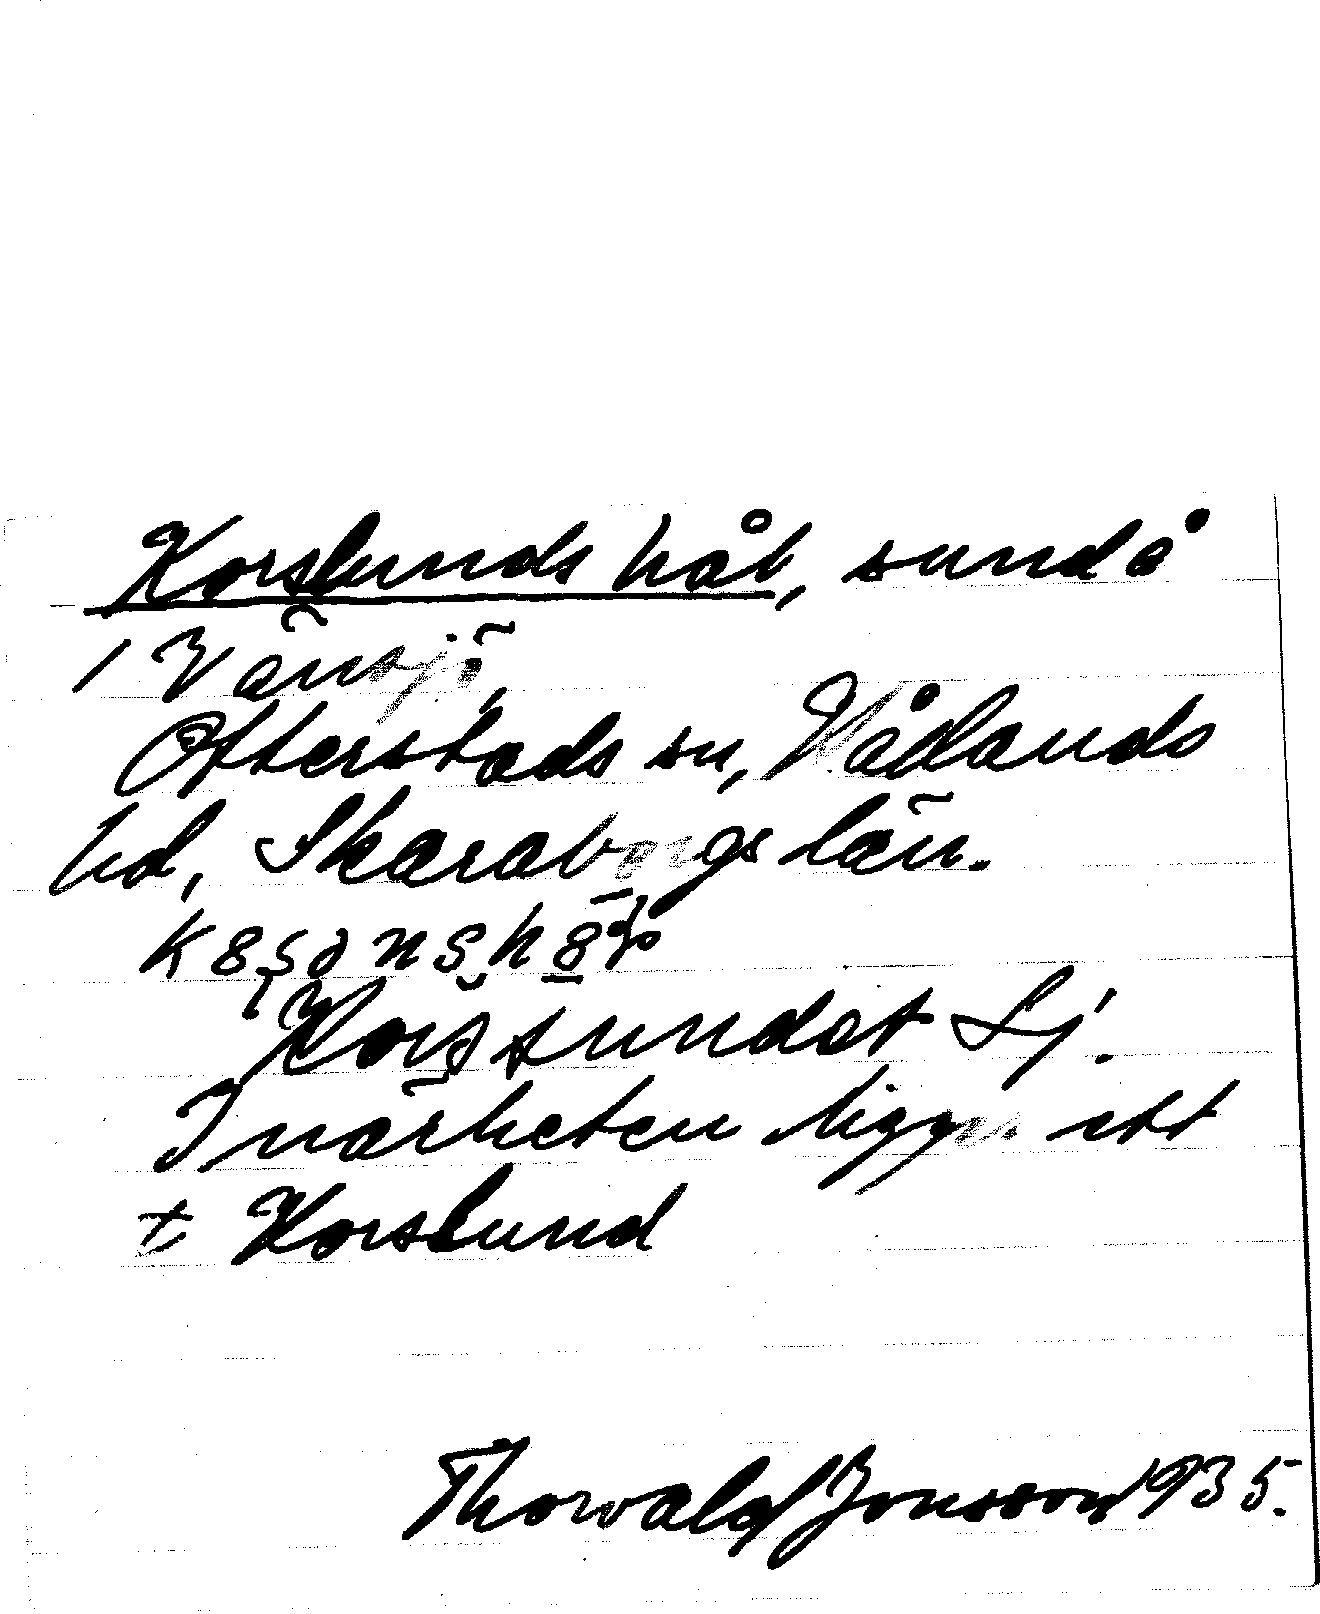 Korslunds hål, sund å
i Vänsjö,
Otterstads sn, Kålands
hd, Skaraborgs län.
Korssundet Sj.
I närheten ligger ett
t Korslund
Thorvald Jonsson 1935.